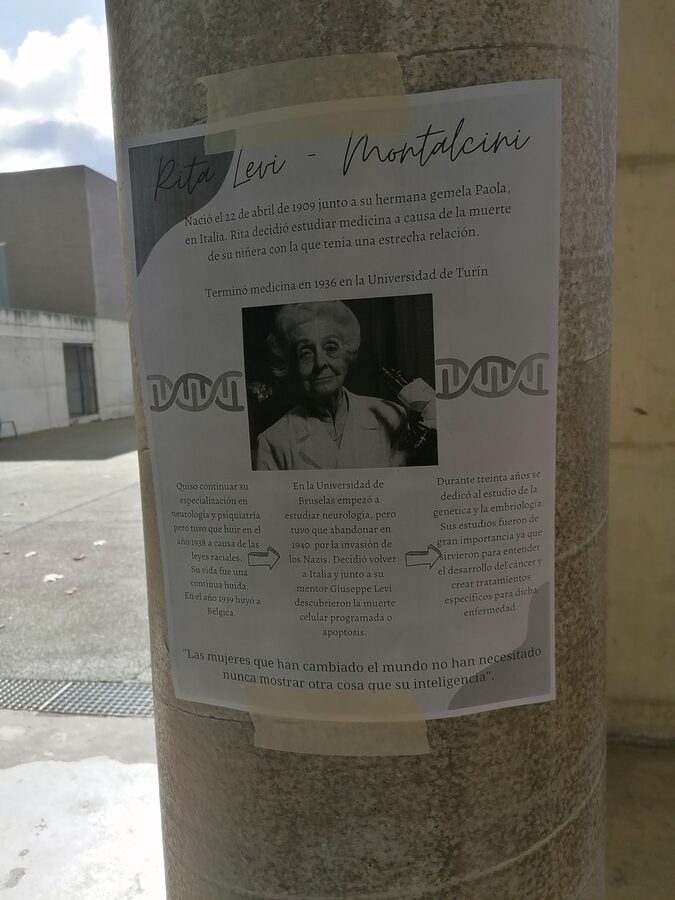 Rita Levi - Montalcini
Nació el 22 de abril de 1909 junto a su hermana gemela Paola,
en Italia. Rita decidió estudiar medicina a causa de la muerte
de su niñera con la que tenía una estrecha relación.
Terminó medicina en 1936 en la Universidad de Turín
Quiso continuar su
especialización en
neurología y psiquiatría
pero tuvo que huir en el
año 1938 a causa de las
leyes raciales.
Su vida fue una
continua huida.
En el año 1939 huyó a
Bélgica.
En la Universidad de
Bruselas empezó a
estudiar neurología, pero
tuvo que abandonar en
1940 por la invasión de
los Nazis. Decidió volver
a Italia y junto a su
mentor Giuseppe Levi
descubrieron la muerte
celular programada o
apoptosis.
Durante treinta años se
dedicó al estudio de la
genética y la embriología.
Sus estudios fueron de
gran importancia ya que
sirvieron para entender
el desarrollo del cáncer y
crear tratamientos
específicos para dicha
enfermedad.
"Las mujeres que han cambiado el mundo no han necesitado
nunca mostrar otra cosa que su inteligencia".